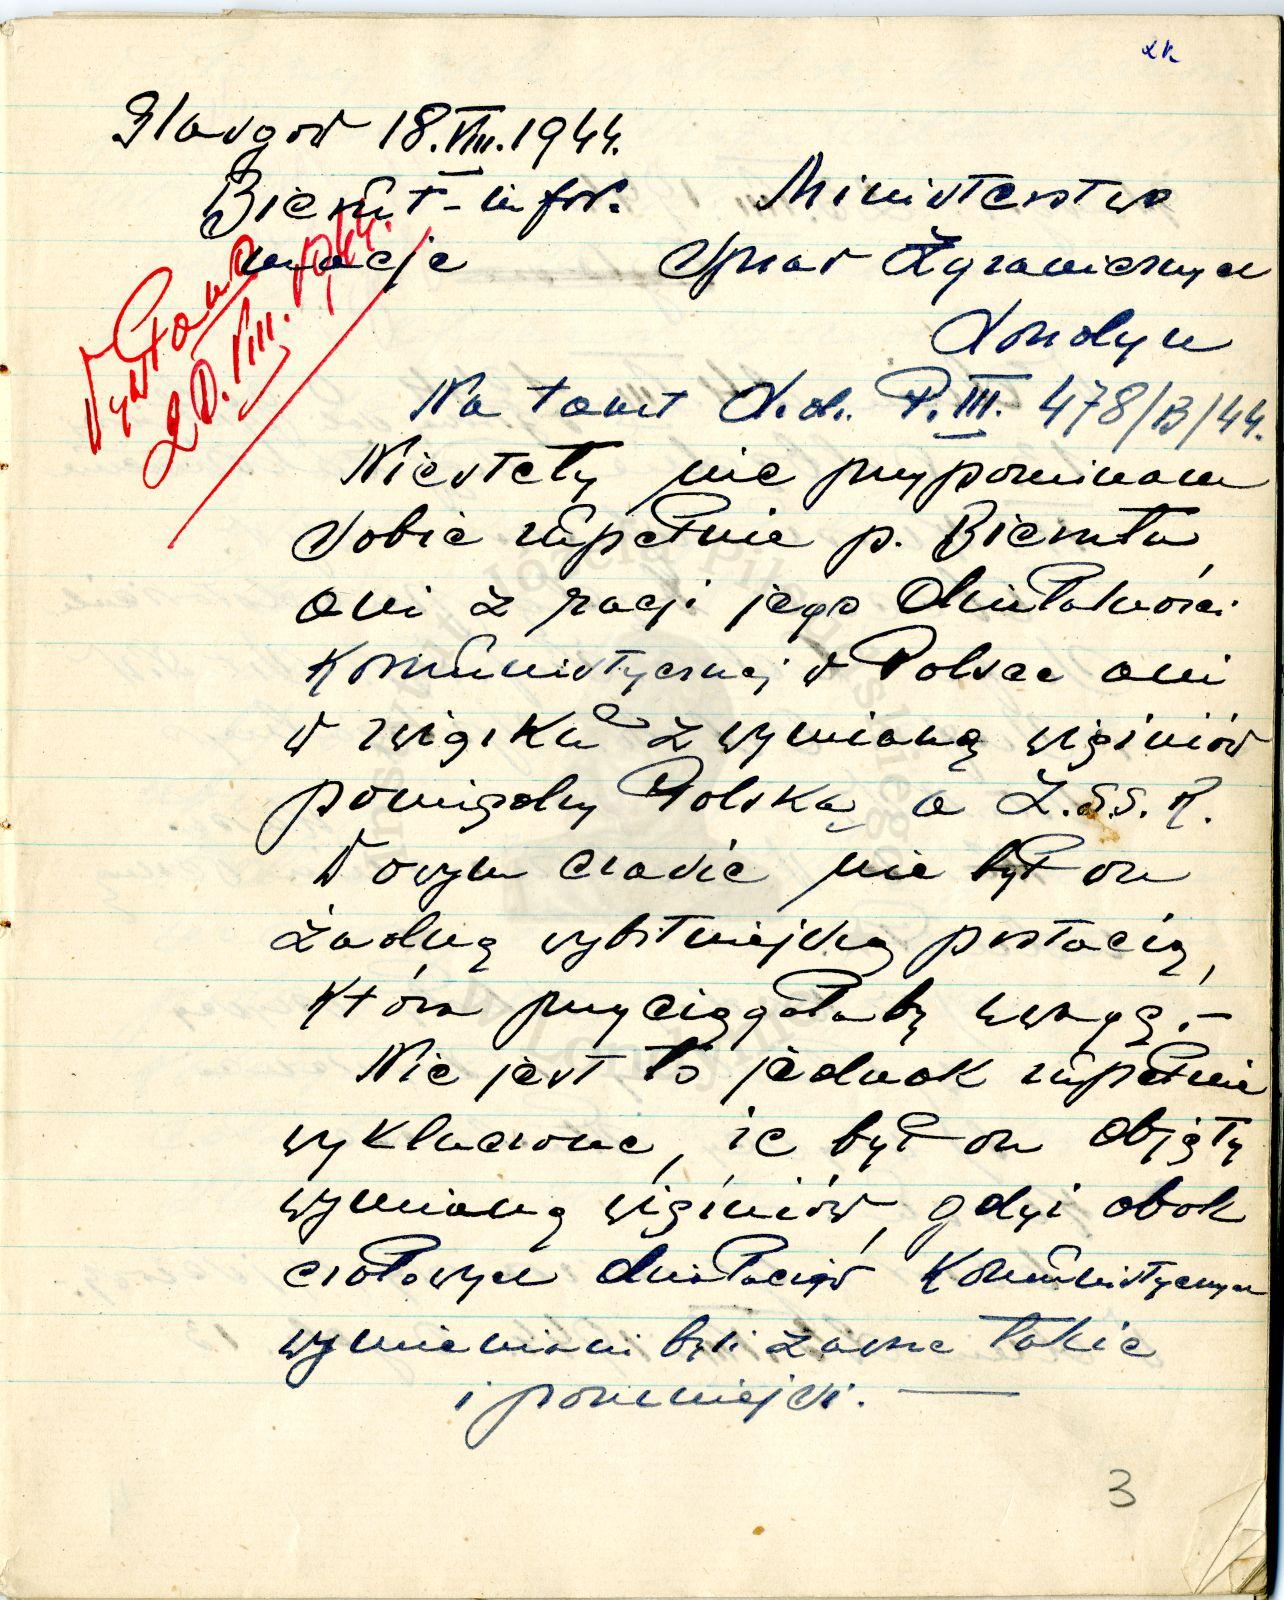 Glasgow 18.VIII.1944.
Bierut – infor-
macje
Ministerstwo
Spraw Zagranicznych
Londyn
Wysłano
20.VIII.1944.
Na tamt L.dz. P.III. 478/B/44.
Niestety nie przypominam
sobie zupełnie p. Bieruta
ani z racji jego działalności
komunistycznej w Polsce ani
w związku z wymianą więźniów
pomiędzy Polską a Z.S.S.R.
W owym czasie nie był on
żadną wybitniejszą postacią,
która przyciągałaby uwagę.–
Nie jest to jednak zupełnie
wykluczone, że był on objęty
wymianą więźniów, gdyż obok
czołowych działaczów komunistycznych
wymieniani byli zawsze także
i pomniejsi. —
3